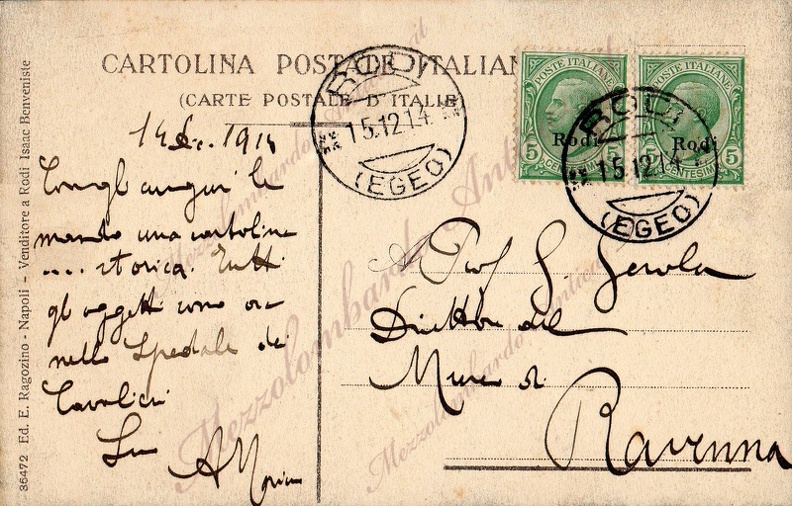 CARTOLINA POSTALE ITALIANA
(CARTE POSTALE D'ITALIE)
RODI
15.12.14
(EGEO)
POSTE ITALIANE
Rodi
5 CENTESIMI 5
POSTE ITALIANE
Rodi
5 CENTESIMI 5
RODI
15.12.14
(EGEO)
14 Dic. 1914
Con gli auguri le
mando una cartolina
.... storica. Tutti
gli oggetti sono ora
nello Spedale dei
Cavalieri
Suo
A
Prof G. Gerola
Direttore del
Museo di
Ravenna
36472 Ed. E. Ragozino - Napoli - Venditore a Rodi Isaac Benveniste
Mezzolombardo Antic
Mezzolombardo Antic
.it